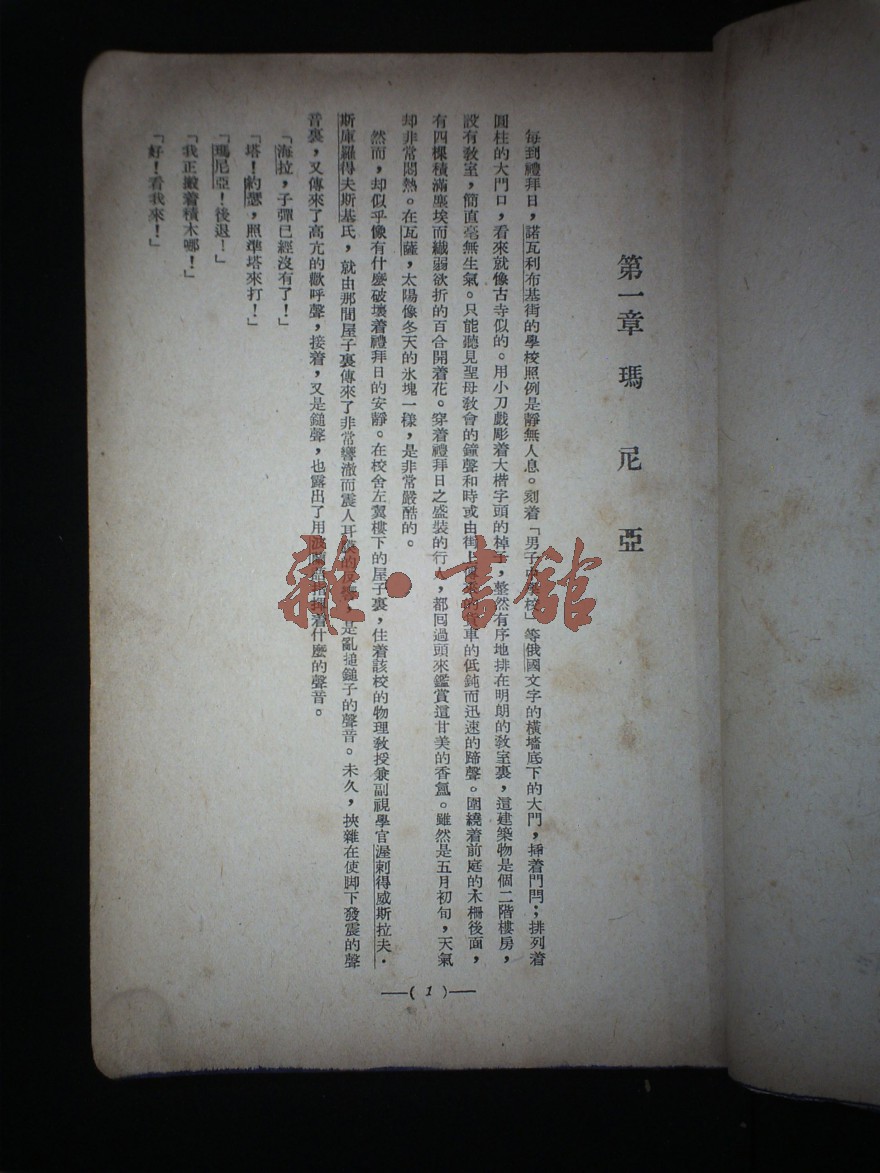 第一章 瑪尼亞
每到禮拜日，諾瓦利布基街的學校照例是靜無人息。刻着「男子中學校」等俄國文字的橫墻底下的大門，揷着門閂；排列着
圓柱的大門口，看來就像古寺似的。用小刀戲彫着大楷字頭的棹子，整然有序地排在明朗的敎室裏，這建築物是個二階樓房，
設有敎室，簡直毫無生氣。只能聽見聖母敎會的鐘聲和時或由街上 車的低鈍而迅速的蹄聲。圍繞着前庭的木柵後面，
有四棵積滿塵埃而纖弱欲折的百合開着花。穿着禮拜日之盛裝的行 ，都囘過頭來鑑賞這甘美的香氣。雖然是五月初旬，天氣
却非常悶熱。在瓦薩，太陽像冬天的氷塊一樣，是非常嚴酷的。
然而，却似乎像有什麼破壞着禮拜日的安靜。在校舍左翼樓下的屋子裏，住着該校的物理敎授兼副視學官渥剌得威斯拉夫·
斯庫羅得夫斯基氏，就由那間屋子裏傳來了非常響澈而震人耳 的 是亂搥鎚子的聲音。未久，挾雜在使脚下發震的聲
音裏，又傳來了高亢的歡呼聲，接着，又是鎚聲，也露出了用波 着什麼的聲音。
「海拉，子彈已經沒有了！」
「塔！約瑟，照準塔來打！」
「瑪尼亞！後退！」
「我正搬着積木哪！」
「好！看我來！」
—( 1 )—
雜·書舘